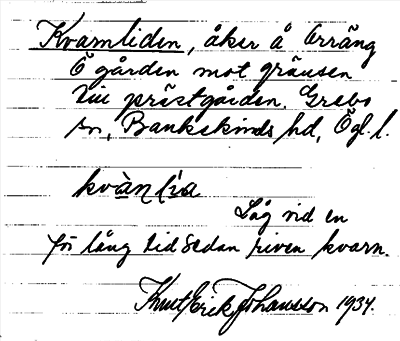 Kvarnliden, åker å Erräng
Ö gården mot gränsen
till prästgården. Grebo
sn, Bankekinds hd, Ögl. l.
kvànlìa
Låg vid en
för lång tid sedan riven kvarn.
Knut Erik Johansson 1934.